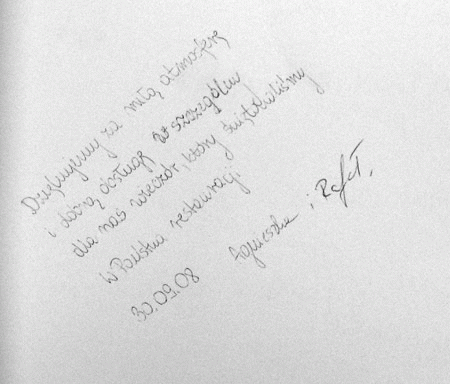 Dziękujemy za miłą atmosferę
i dobrą obsługę w szczególny
dla nas wieczór, który świętowaliśmy
w Państwa restauracji.
30.09.08 Agnieszka i Rafał.